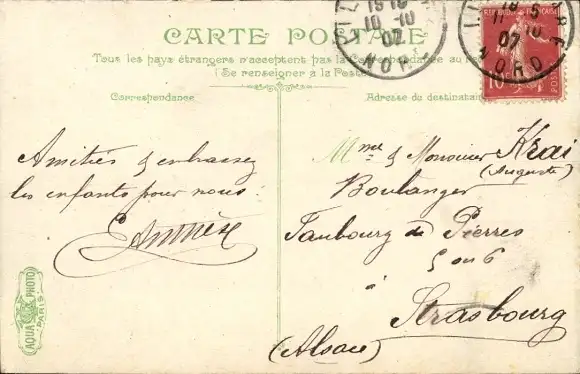 CARTE POSTALE
Tous les pays étrangers n'acceptent pas la Correspondance au
(Se renseigner à la Poste)
Correspondance
Adresse du destinataire
LILLE
10-10
07
NORD
07
NORD
REPUBLIQUE FRANÇAISE
10
POSTES
Amitiés & embrassez
les enfants pour nous
Mme & Monsieur Krai
(Auguste)
Boulanger
Faubourg de Pierres
5 ou 6
à
Strasbourg
(Alsace)
AQUA PHOTO
PARIS